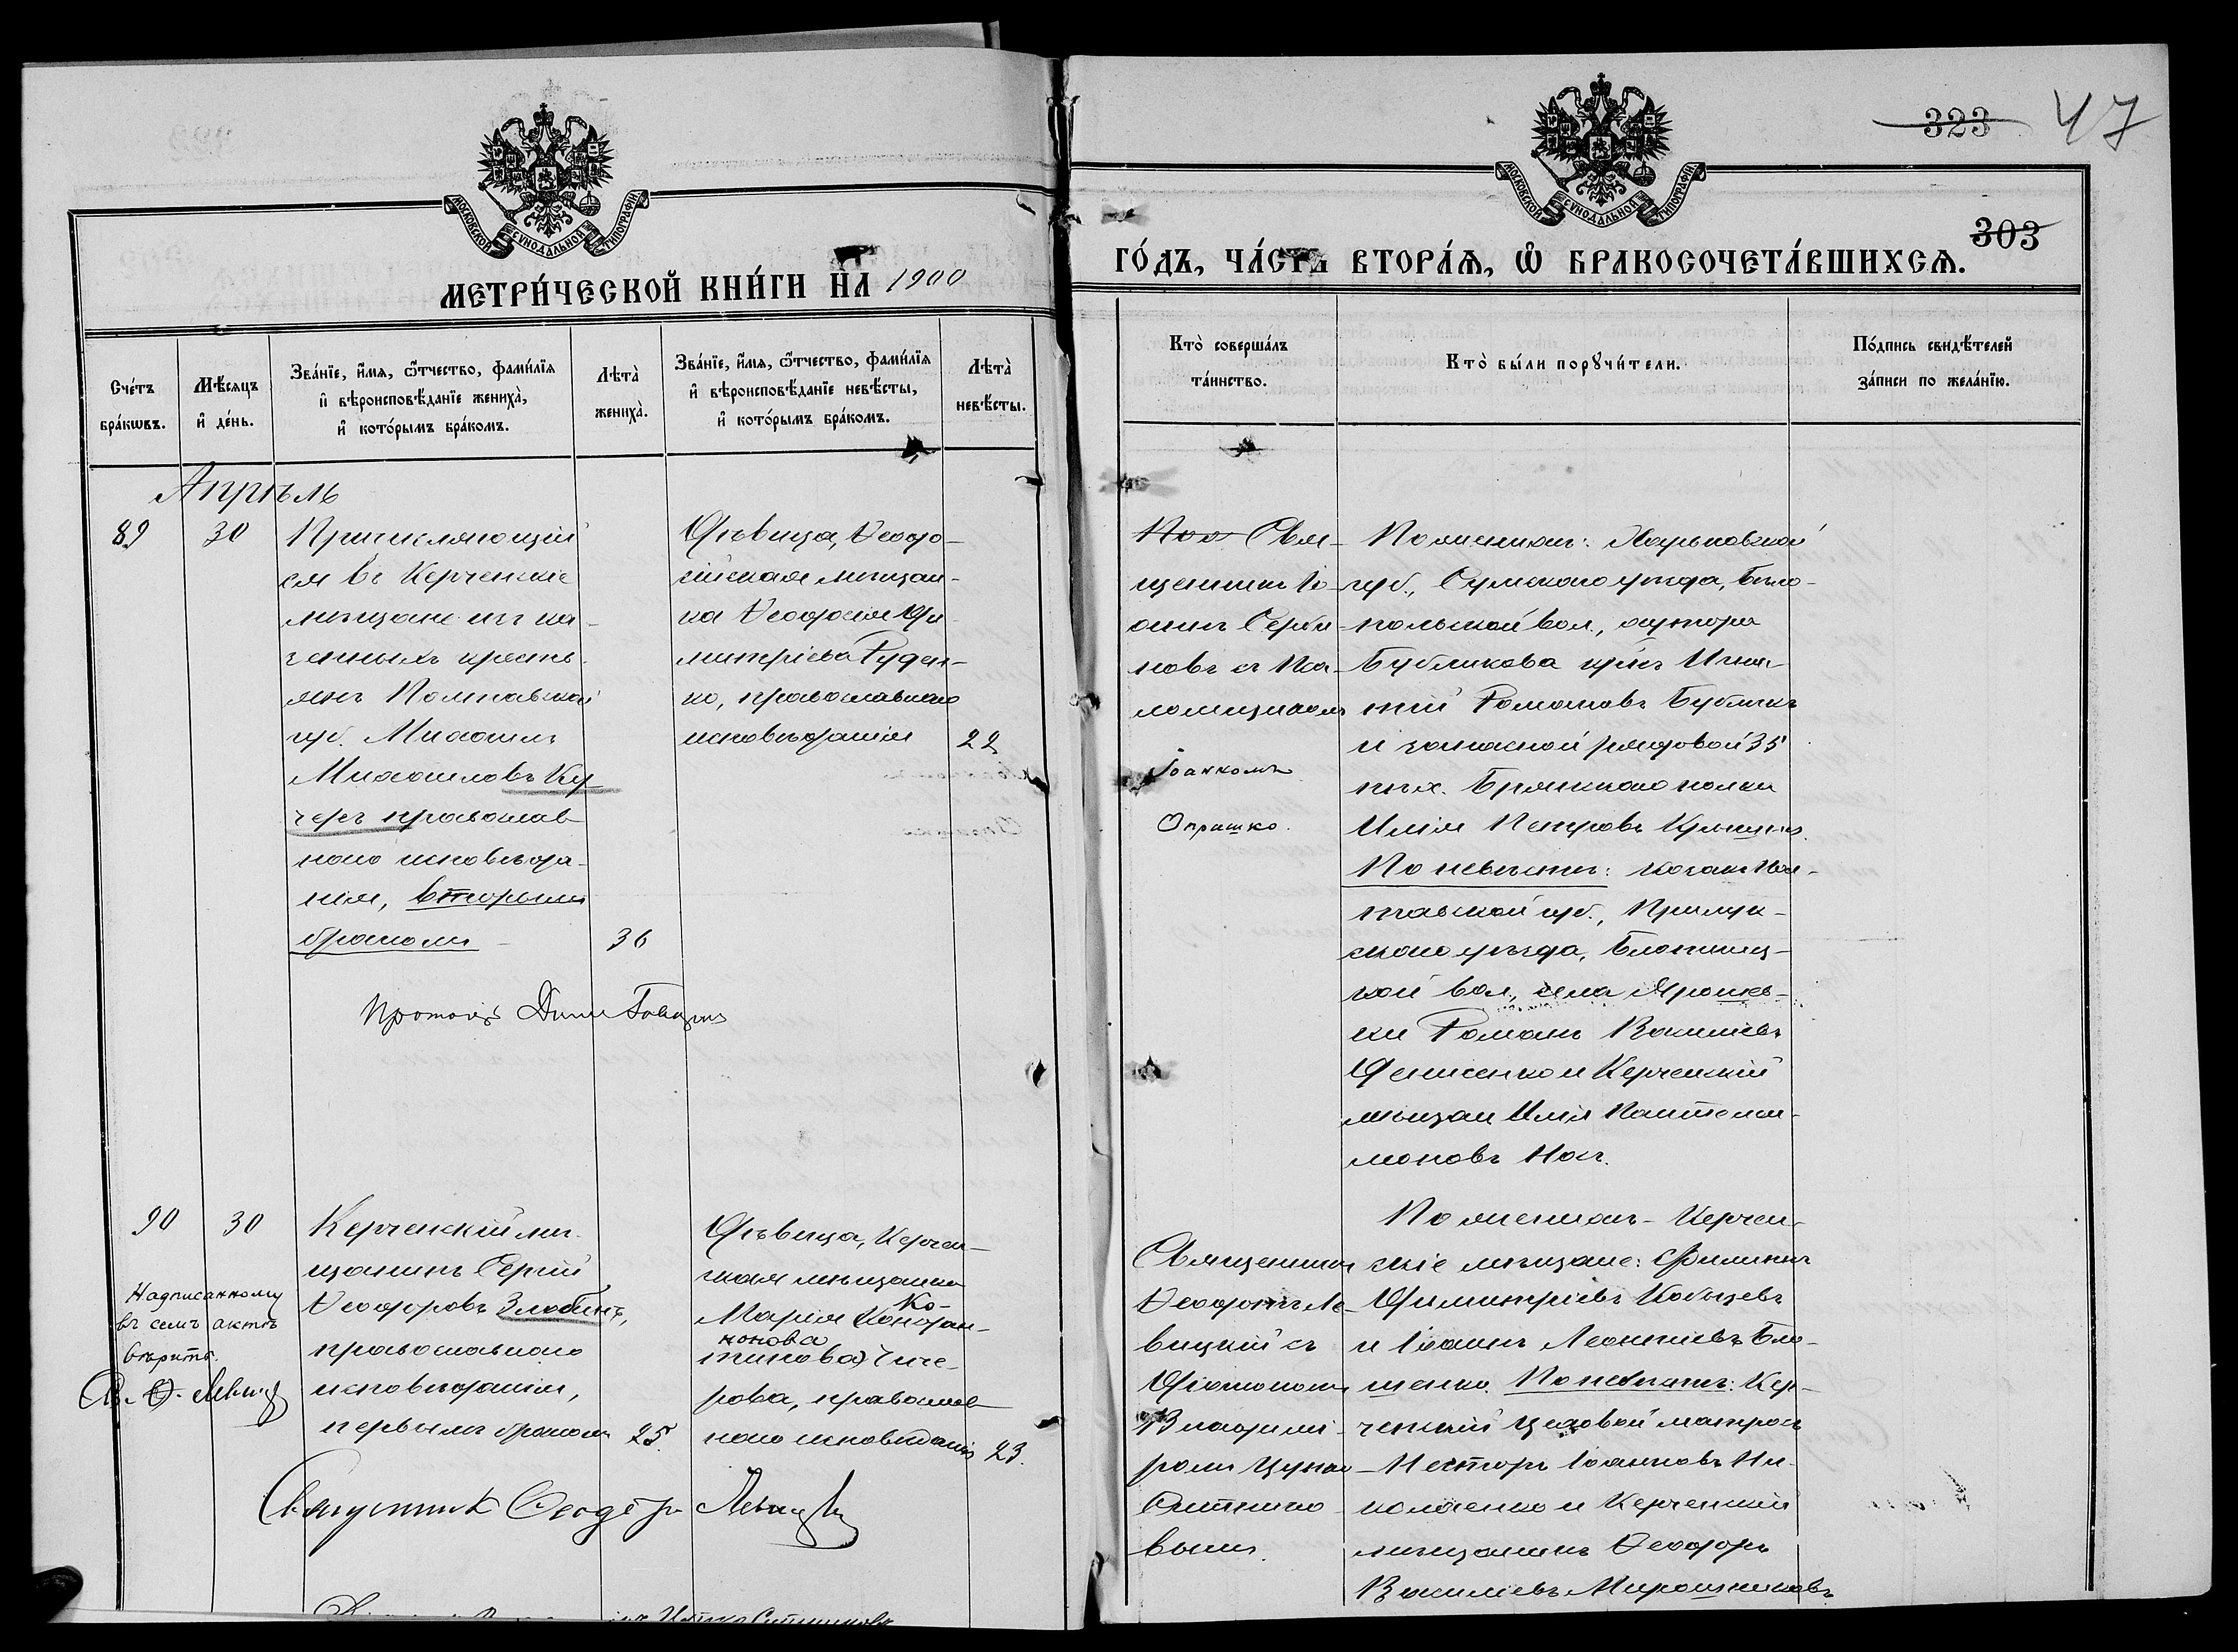 323 47
303
МОСКОВСКОЙ СѴНОДАЛЬНОЙ ТИПОГРАФІИ.
МЕТРИ́ЧЕСКОЙ КНИ́ГИ НА 1900
Сче́тъ бра́кѡвъ.
Мѣ́сяцъ и҆ де́нь.
Зва́нїе, и҆́мѧ, ѻ҆́тчество, фами́лїѧ
и҆ вѣроисповѣ́данїе жениха̀,
и҆ кото́рымъ бра́комъ.
Лѣта̀ жениха̀.
Зва́нїе, и҆́мѧ, ѻ҆́тчество, фами́лїѧ
и҆ вѣроисповѣ́данїе невѣ́сты,
и҆ кото́рымъ бра́комъ.
Лѣта̀ невѣ́сты.
Апрѣль
89 30
Причисляющій
ся въ Керченскіе
мѣщане изъ ка-
зенныхъ кресть-
янъ Полтавской
губ. Михаилъ
Михаиловъ Ку
черъ православ
наго исповѣда-
нія, вторымъ
бракомъ 36
Дѣвица, Ѳеодо-
сійская мѣщан-
ка Ѳеодосія Ди-
митріева Руден-
ко, православнаго
исповѣданія 22
90 30
Надписанному
въ семъ актѣ
вѣрить.
Керченскій мѣ-
щанинъ Сергій
Ѳеодоровъ Злобинъ,
православнаго
исповѣданія,
первымъ бракомъ 25.
Дѣвица, Керчен-
ская мѣщанка
Марія
Ко-
нонова
рова, православ
наго исповѣданія 23.
Священникъ Ѳеодоръ
МОСКОВСКОЙ СѴНОДАЛЬНОЙ ТИПОГРАФІИ.
ГО́ДЪ, ЧА́СТЬ ВТОРА́Ѧ, Ѽ БРАКОСОЧЕТА́ВШИХСѦ.
Кто̀ соверша́лъ та́инство.
Кто̀ бы́ли порꙋчи́тели.
По́дпись свидѣ́телей за́писи по жела́нїю.
Свя-
щенникъ Іо-
аннъ Серби-
новъ съ Пса-
ломщикомъ
Іоанномъ
Опришко.
По женихѣ: Харьковской
губ., Сумскаго уѣзда, Бѣло-
польской вол., хутора
Бубликова кр-нъ Игна-
тій Романовъ Бубликъ
и запасной рядовой 35
пѣх. Брянскаго полка
Илія Петровъ
По невѣстѣ: козакъ Пол-
тавской губ., Прилук-
скаго уѣзда,
кой вол., села Ярошев-
ки Романъ Василіевъ
Денисенко и Керченскій
мѣщан Илія Пантелеи-
моновъ
Священникъ
Ѳеодоръ Ле-
вицкій съ
Діакономъ
Владими-
ромъ
По женихѣ - Керчен-
скіе мѣщане: Филиппъ
Димитріевъ Кобызевъ
и Іоаннъ Леонтіевъ
По невѣстѣ: Кер-
ченскій цеховой матросъ
Несторъ Іоанновъ Ни-
колаенко и Керченскій
мѣщанинъ Ѳеодоръ
Василіевъ Мирошниковъ